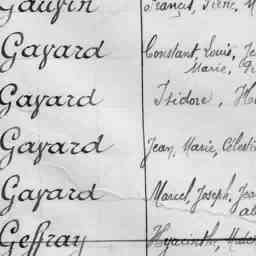 Gauvin François, Irène, M
Gayard Constant, Louis, Je
Marie,
Gayard Isidore, H
Gayard Jean, Marie, Célesti
Gayard Marcel, Joseph, Jea
Geffray Hyacinthe, Made